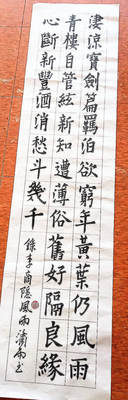 淒涼寶劍篇羈泊欲窮年黃葉仍風雨
青樓自管絃新知遭薄俗舊好隔良緣
心斷新豐酒消愁斗幾千
錄李商隱風雨